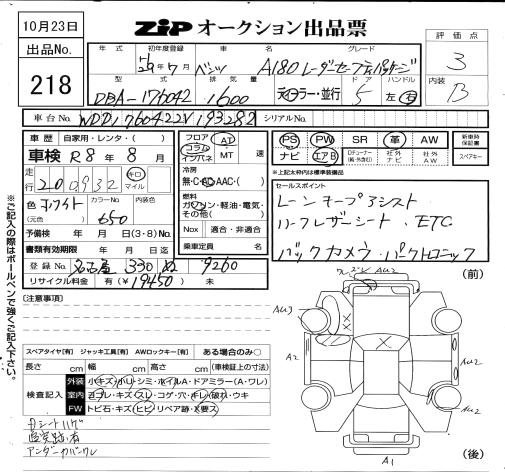 10月23日
ZIP オークション出品票
出品No.
218
年式 初年度登録 車名 グレード
29年7月 ベンツ A180 レーダーセーフティパッケージ
型式 排気量 ドア ハンドル
DBA-176042 1600 ディーラー・並行 5 左 右
評価点
3
内装
B
車台No. WDD1760422V193282 シリアルNo.
車歴 自家用・レンタ・( )
車検 R8年8月
走行 200,932 キロ マイル
色 ホワイト (元色)
カラーNo. 650 内装色
予備検 年 月 日(3・8)No.
書類有効期限 年 月 日迄
登録No. 名古屋 330 9260
リサイクル料金 有(¥19450) 未
フロア コラム インパネ AT MT 速
冷房 無・C・AC AAC・( )
燃料 ガソリン・軽油・電気・その他( )
Nox 適合・非適合
乗車定員 名
PS PW SR 革 AW
ナビ エアB Dチューナー(純・外含む) 社外ナビ 社外AW
新車時保証書
スペアキー
※上記2本枠内は標準装備品
セールスポイント
レーンキープアシスト
ハーフレザーシート、ETC
バックカメラ・パークトロニック
※ご記入の際はボールペンで強くご記入下さい。
(注意事項)
スペアタイヤ[有] ジャッキ工具[有] AWロックキー[有] ある場合のみ〇
長さ cm 幅 cm 高さ cm (車検証上の寸法)
検査記入
外装 小キズ・小凹・シミ・ホイルA・ドアミラー(A・ワレ)
室内 ヨゴレ・キズ・スレ・コゲ・穴・キレ・破れ・ウキ
FW トビ石・キズ・ヒビ・リペア跡・X要ス
Dシートハゲ
アンダーカバーワレ
(前)
AU2
AU3
A2
AU2
AU2
A1
(後)